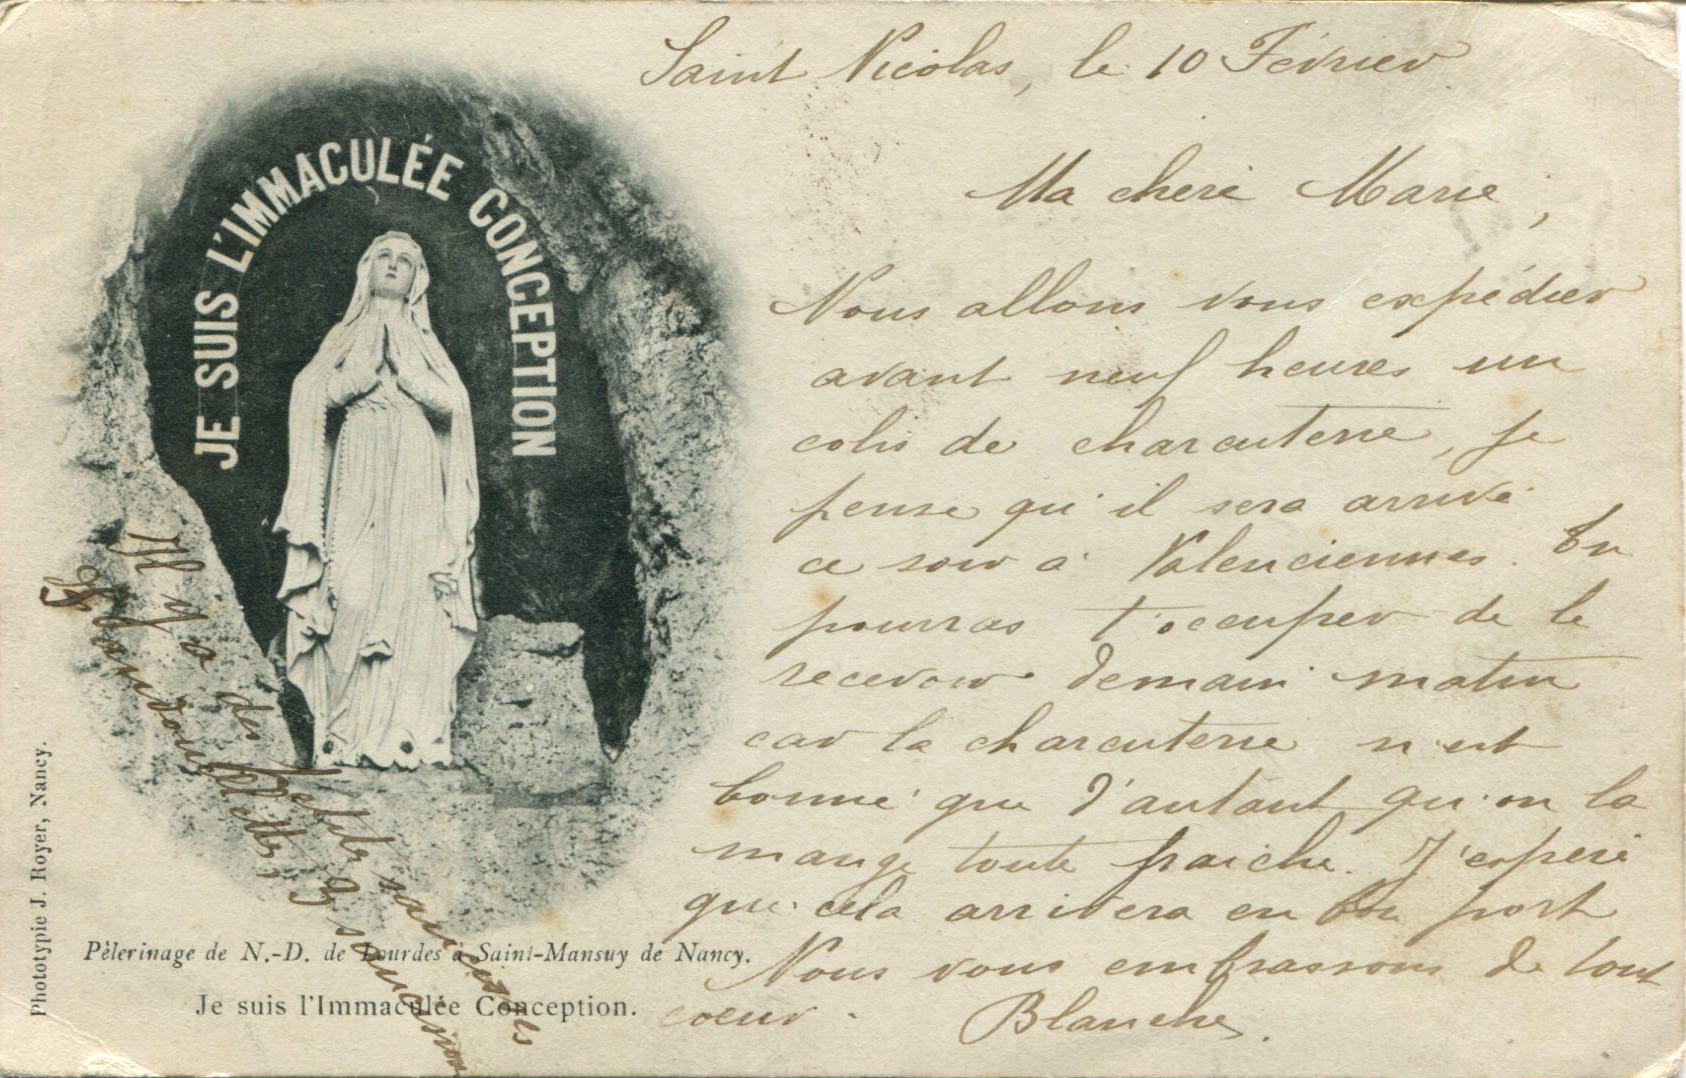 Saint Nicolas, le 10 Février
Ma chère Marie,
Nous allons vous expédier
avant neuf heures un
colis de charcuterie, je
pense qu'il sera arrivé
ce soir à Valenciennes. Tu
pourras t'occuper de le
recevoir demain matin
car la charcuterie n'est
bonne que d'autant qu'on la
mange toute fraîche. J'espère
que cela arrivera en bon port
Nous vous embrassons de tout
coeur. Blanche.
JE SUIS L'IMMACULÉE CONCEPTION
Il y a des petites saucisses
2 andouillettes, 2 saucisson
Pèlerinage de N.-D. de Lourdes à Saint-Mansuy de Nancy.
Je suis l'Immaculée Conception.
Phototypie J. Royer, Nancy.